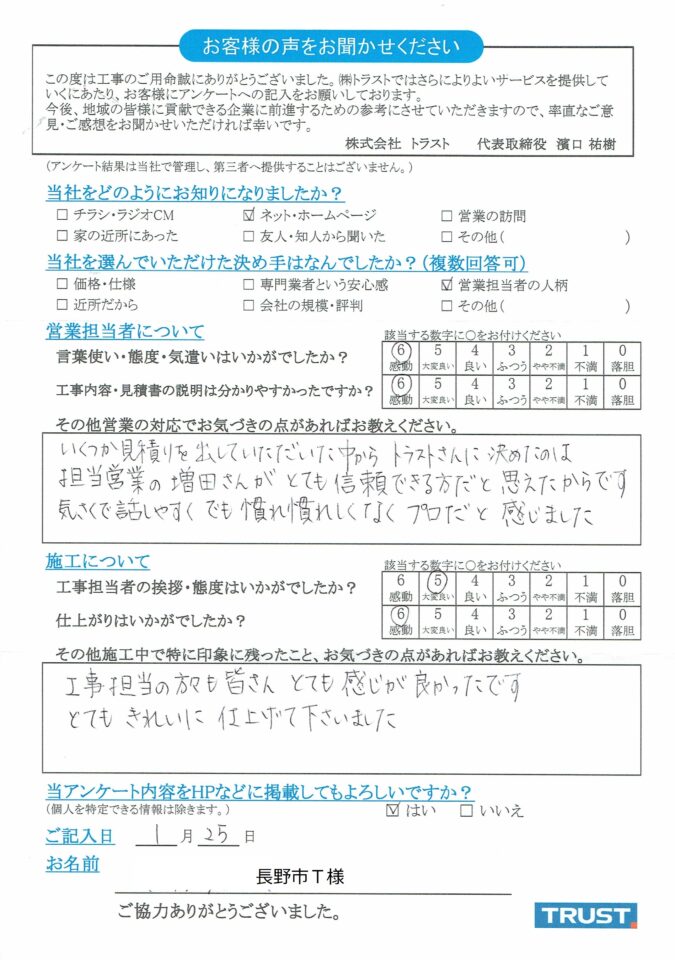 お客様の声をお聞かせください
この度は工事のご用命誠にありがとうございました。㈱トラストではさらによりよいサービスを提供して
いくにあたり、お客様にアンケートへの記入をお願いしております。
今後、地域の皆様に貢献できる企業に前進するための参考にさせていただきますので、率直なご意
見・ご感想をお聞かせいただければ幸いです。
株式会社 トラスト 代表取締役 濱口 祐樹
(アンケート結果は当社で管理し、第三者へ提供することはございません。)
当社をどのようにお知りになりましたか？
□ チラシ・ラジオCM ☑ ネット・ホームページ □ 営業の訪問
□ 家の近所にあった □ 友人・知人から聞いた □ その他( )
当社を選んでいただけた決め手はなんでしたか？(複数回答可)
□ 価格・仕様 □ 専門業者という安心感 ☑ 営業担当者の人柄
□ 近所だから □ 会社の規模・評判 □ その他( )
営業担当者について 該当する数字に○をお付けください
言葉使い・態度・気遣いはいかがでしたか？ 6 5 4 3 2 1 0
感動 大変良い 良い ふつう やや不満 不満 落胆
工事内容・見積書の説明は分かりやすかったですか？ 6 5 4 3 2 1 0
感動 大変良い 良い ふつう やや不満 不満 落胆
その他営業の対応でお気づきの点があればお教えください。
いくつか見積りを出していただいた中から トラストさんに 決めたのは
担当営業の増田さんが とても信頼できる方だと 思えたからです
気さくで話しやすく でも慣れ慣れしくなく プロだと 感じました
施工について 該当する数字に○をお付けください
工事担当者の挨拶・態度はいかがでしたか？ 6 5 4 3 2 1 0
感動 大変良い 良い ふつう やや不満 不満 落胆
仕上がりはいかがでしたか？ 6 5 4 3 2 1 0
感動 大変良い 良い ふつう やや不満 不満 落胆
その他施工中で特に印象に残ったこと、お気づきの点があればお教えください。
工事担当の方々も 皆さん とても 感じが良かったです
とても きれいに 仕上げて下さいました
当アンケート内容をHPなどに掲載してもよろしいですか？
(個人を特定できる情報は除きます。) ☑ はい □ いいえ
ご記入日 1 月 25 日
お名前 長野市T様
ご協力ありがとうございました。
TRUST.